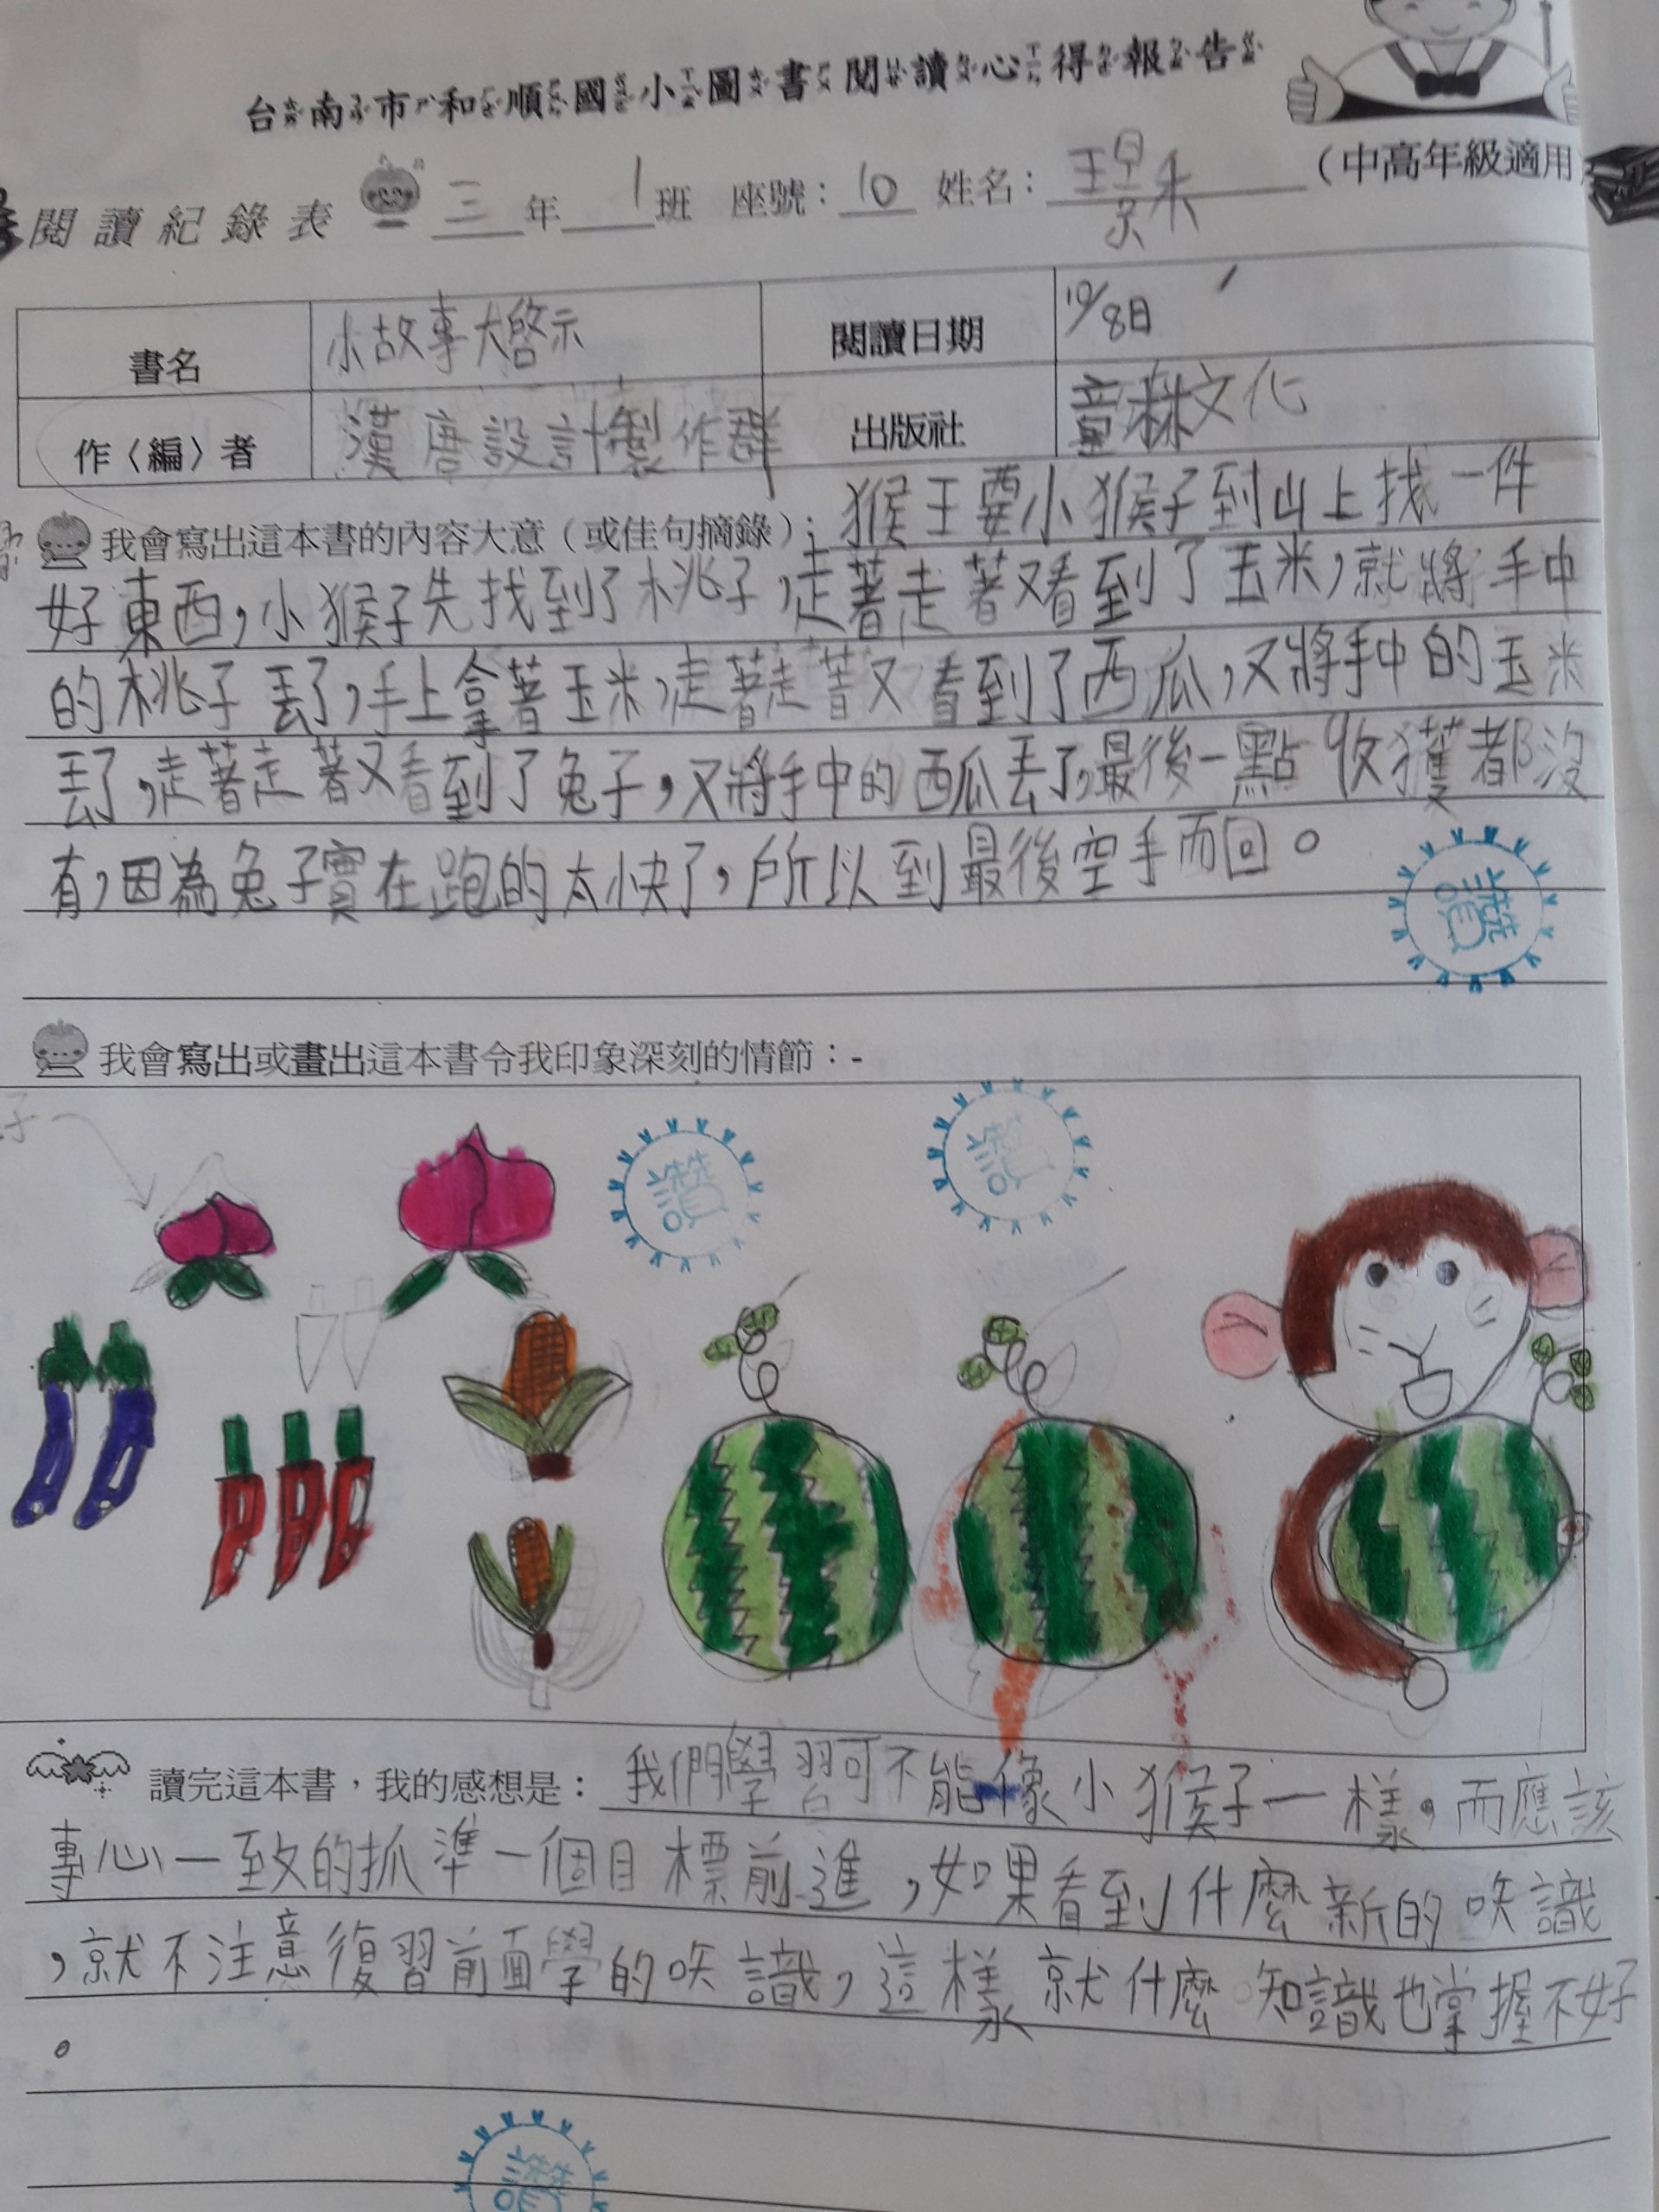 台南市和順國小圖書閱讀心得報告
(中高年級適用)
閱讀紀錄表 三年1班 座號:10 姓名:
書名 小故事大啓示 閱讀日期 10/8日
作〈編〉者 漢唐設計製作群 出版社 童林文化
我會寫出這本書的內容大意(或佳句摘錄):猴王要小猴子到山上找一件
好東西,小猴子先找到了桃子,走著走著又看到了玉米,就將手中
的桃子丟了,手上拿著玉米,走著走著又看到了西瓜,又將手中的玉米
丟了,走著走著又看到了兔子,又將手中的西瓜丟了,最後一點收獲都沒
有,因為兔子實在跑的太快了,所以到最後空手而回。
讚
我會寫出或畫出這本書令我印象深刻的情節:-
子
讚
讚
讀完這本書,我的感想是:我們學習可不能像小猴子一樣,而應該
專心一致的抓準一個目標前進,如果看到什麼新的知識
,就不注意復習前面學的知識,這樣就什麼知識也掌握不好
。
讚